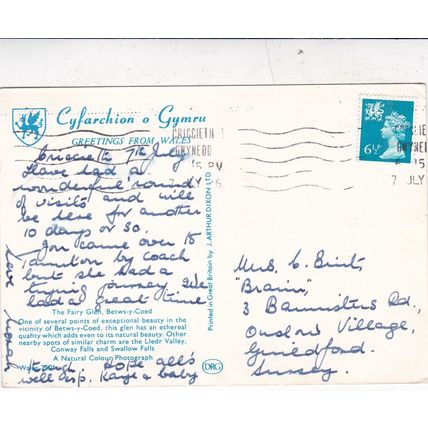 Cyfarchion o Gymru
GREETINGS FROM WALES
Criccieth 7th July
Have had a
wonderful round
of visits and will
be here for another
10 days or so.
Jon came over to
Taunton by coach
but she had a
tiring journey. We
had a great time
The Fairy Glen, Betws-y-Coed
One of several points of exceptional beauty in the
vicinity of Betws-y-Coed, this glen has an ethereal
quality which adds even to its natural beauty. Other
nearby spots of similar charm are the Lledr Valley,
Conway Falls and Swallow Falls
A Natural Colour Photograph
though. Hope all's
well esp. Kaye & baby
Love
Printed in Great Britain by J. ARTHUR DIXON LTD.
DRG
CRICCIETH
GWYNEDD
15 PM
7 JLY
6½P
GWYNED
15
7 JLY
Mrs. C.
3 Bannisters Rd.,
Onslow Village,
Guildford.
Surrey.